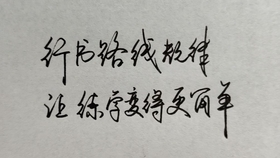 行书路线规律
让练字变得更简单